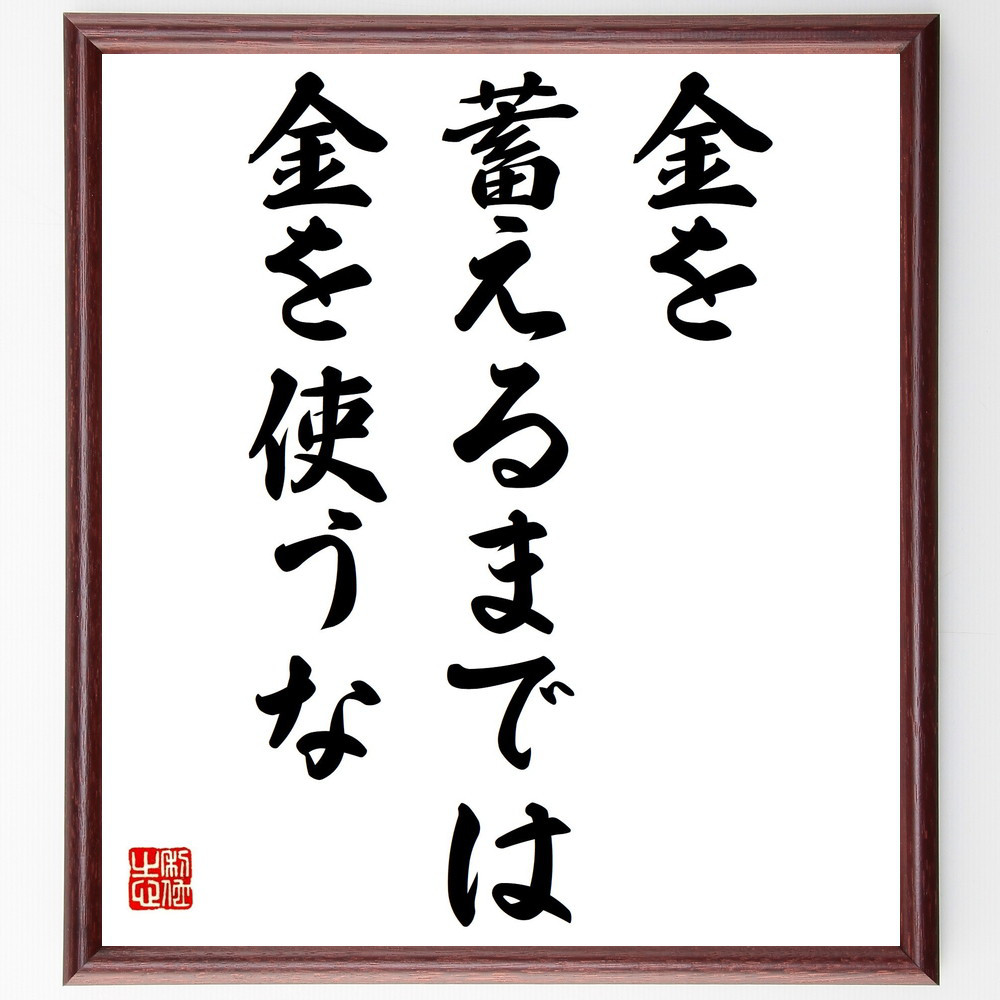 金を
蓄えるまでは
金を使うな